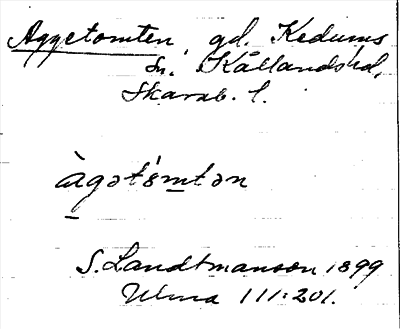 Aggetomten, gd. Kedums
sn. Kållands hd,
Skarab. l.
àgətómtən
S. Landtmanson 1899
Ulma 111:201.